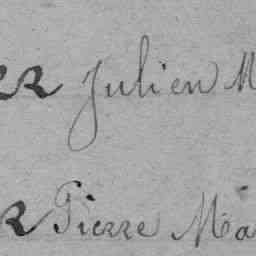 Julien M
Pierre Ma